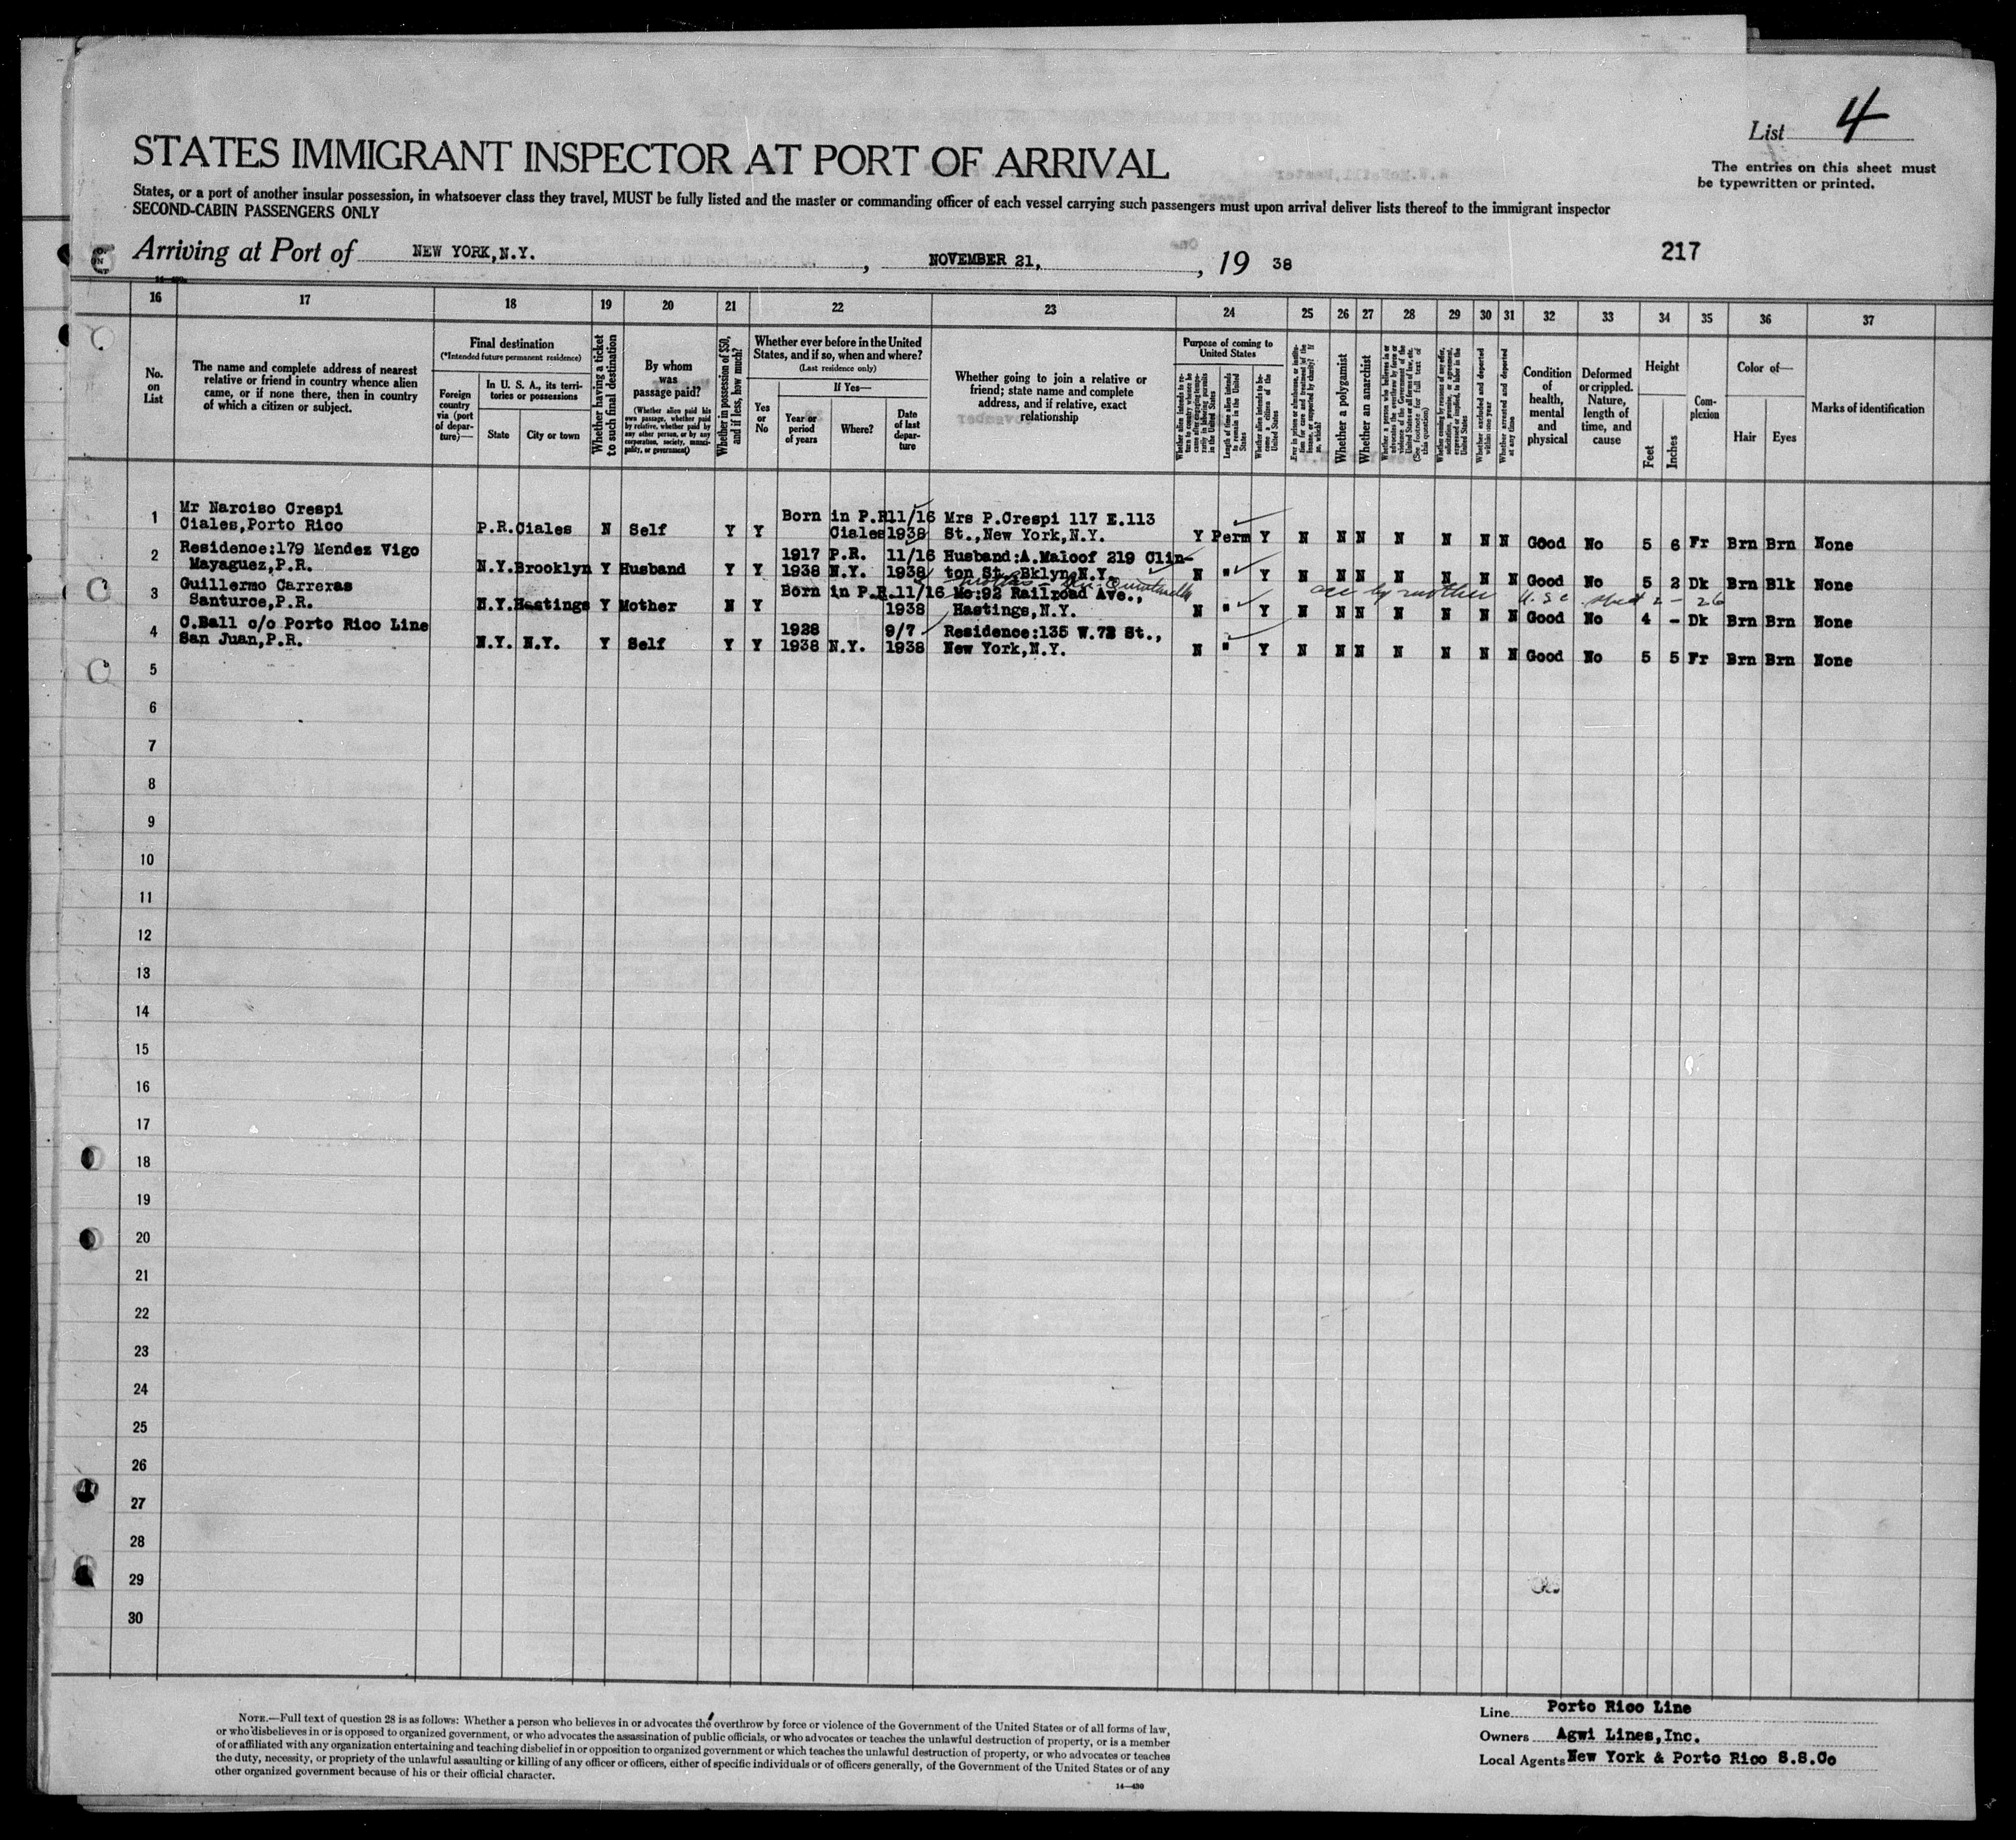 List 4
The entries on this sheet must
be typewritten or printed.
STATES IMMIGRANT INSPECTOR AT PORT OF ARRIVAL
States, or a port of another insular possession, in whatsoever class they travel, MUST be fully listed and the master or commanding officer of each vessel carrying such passengers must upon arrival deliver lists thereof to the immigrant inspector
SECOND-CABIN PASSENGERS ONLY
Arriving at Port of NEW YORK,N.Y. , NOVEMBER 21, , 19 38
217
16 17 18 19 20 21 22 23 24 25 26 27 28 29 30 31 32 33 34 35 36 37
No.
on
List
The name and complete address of nearest
relative or friend in country whence alien
came, or if none there, then in country
of which a citizen or subject.
Final destination
(*Intended future permanent residence)
Foreign
country
via (port
of depar-
ture)—
In U. S. A., its terri-
tories or possessions
State
City or town
Whether having a ticket
to such final destination
By whom
was
passage paid?
(Whether alien paid his
own passage, whether paid
by relative, whether paid by
any other person, or by any
corporation, society, munici-
pality, or government)
Whether in possession of $50,
and if less, how much?
Whether ever before in the United
States, and if so, when and where?
(Last residence only)
Yes
or
No
If Yes—
Year or
period
of years
Where?
Date
of last
depar-
ture
Whether going to join a relative or
friend; state name and complete
address, and if relative, exact
relationship
Purpose of coming to
United States
Whether alien intends to re-
turn to country whence he
came after engaging tempo-
rarily in laboring pursuits
in the United States
Length of time alien intends
to remain in the United
States
Whether alien intends to be-
come a citizen of the
United States
Ever in prison or almshouse, or institu-
tion for care and treatment of the
insane, or supported by charity? If
so, which?
Whether a polygamist
Whether an anarchist
Whether a person who believes in or
advocates the overthrow by force or
violence of the Government of the
United States or all forms of law, etc.
(See footnote for full text of
this question)
Whether coming by reason of any offer,
solicitation, promise, or agreement,
expressed or implied, to labor in the
United States
Whether excluded and deported
within one year
Whether arrested and deported
at any time
Condition
of
health,
mental
and
physical
Deformed
or crippled.
Nature,
length of
time, and
cause
Height
Feet
Inches
Com-
plexion
Color of—
Hair
Eyes
Marks of identification
1 Mr Narciso Crespi
Ciales,Porto Rico P.R. Ciales N Self Y Y Born in P.R. 11/16 Mrs P.Crespi 117 E.113
Ciales 1938 St.,New York,N.Y. Y Perm Y N N N N N N N Good No 5 6 Fr Brn Brn None
2 Residence:179 Mendez Vigo
Mayaguez,P.R. N.Y. Brooklyn Y Husband Y Y 1917 P.R. 11/16 Husband:A.Maloof 219 Clin-
1938 N.Y. 1938 ton St.,Bklyn,N.Y. N " Y N N N N N N N Good No 5 2 Dk Brn Blk None
mother
acc by mother U.S.C.
3 Guillermo Carreras
Santurce,P.R. N.Y. Hastings Y Mother N Y Born in P.R. 11/16 Mo:92 Railroad Ave.,
1938 Hastings,N.Y. N " Y N N N N N N N Good No 4 - Dk Brn Brn None
4 C.Ball c/o Porto Rico Line
San Juan,P.R. N.Y. N.Y. Y Self Y Y 1928 9/7 Residence:135 W.72 St.,
1938 N.Y. 1938 New York,N.Y. N " Y N N N N N N N Good No 5 5 Fr Brn Brn None
5
6
7
8
9
10
11
12
13
14
15
16
17
18
19
20
21
22
23
24
25
26
27
28
29
30
NOTE.—Full text of question 28 is as follows: Whether a person who believes in or advocates the overthrow by force or violence of the Government of the United States or of all forms of law,
or who disbelieves in or is opposed to organized government, or who advocates the assassination of public officials, or who advocates or teaches the unlawful destruction of property, or is a member
of or affiliated with any organization entertaining and teaching disbelief in or opposition to organized government or which teaches the unlawful destruction of property, or who advocates or teaches
the duty, necessity, or propriety of the unlawful assaulting or killing of any officer or officers, either of specific individuals or of officers generally, of the Government of the United States or of any
other organized government because of his or their official character.
14—430
Line Porto Rico Line
Owners Agwi Lines,Inc.
Local Agents New York & Porto Rico S.S.Co